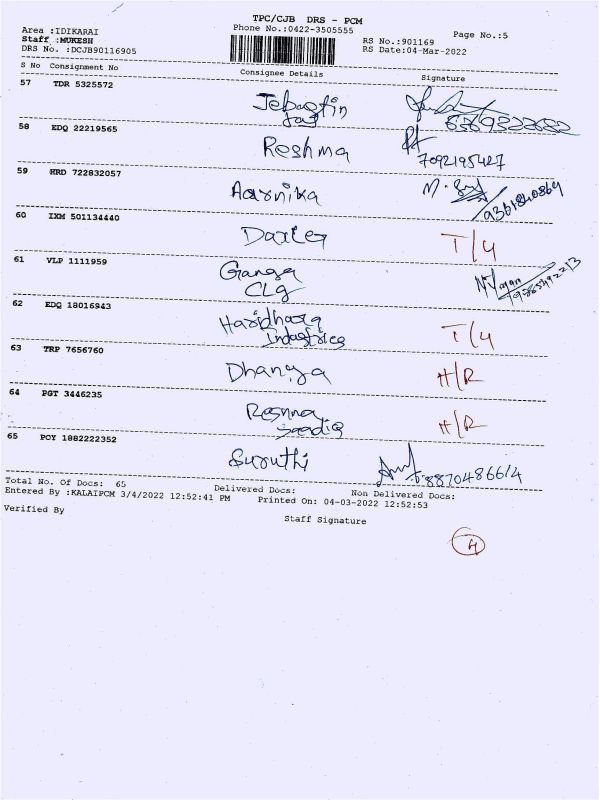 TPC/CJB DRS - PCM
Area :IDIKARAI Phone No.:0422-3505555 Page No.:5
Staff :MUKESH RS No.:901169
DRS No. :DCJB90116905 RS Date:04-Mar-2022
S No Consignment No Consignee Details Signature
57 TDR 5325572
Jebastin
58 EDQ 22219565
Reshma
7092195427
59 HRD 722832057
Aarnika M.
9361840869
60 IXM 501134440
Daxley T/4
61 VLP 1111959
Ganga
CLg
62 EDQ 18016943
Haridhaara T/4
Industries
63 TRP 7656760
Dhanya H/R
64 PGT 3446235
H/R
65 POY 1882222352
Suruthi 8870486614
Total No. Of Docs: 65 Delivered Docs: Non Delivered Docs:
Entered By :KALAIPCM 3/4/2022 12:52:41 PM Printed On: 04-03-2022 12:52:53
Verified By Staff Signature
4